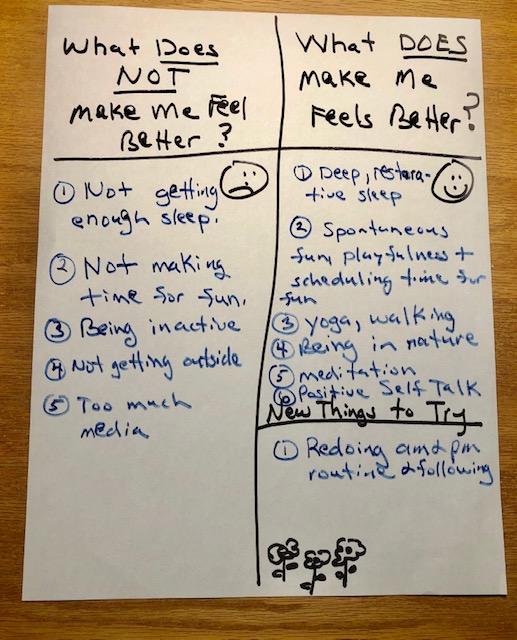 What Does
NOT
make me Feel
Better?
① Not getting
enough sleep.
② Not making
time for fun.
③ Being inactive
④ Not getting outside
⑤ Too much
media
What DOES
make me
Feels Better?
① Deep, restora-
tive sleep
② Spontaneous
fun, playfulness +
scheduling time for
fun
③ yoga, walking
④ Being in nature
⑤ meditation
⑥ Positive Self Talk
New Things to Try
① Redoing am & pm
routine & following